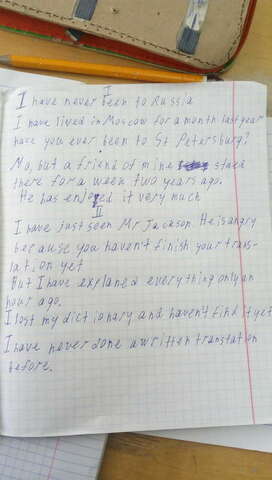 I
I have never been to Russia
I have lived in Moscow for a month last year
have you ever been to St Petersburg?
No, but a friend of mine staed
there for a week two years ago.
He has enjoyed it very much
II
I have just seen Mr Jackson. He is angry
because you haven't finish your trans-
lation yet
But I have explaned everything only an
hour ago.
I lost my dictionary and haven't find it yet
I have never done a written translation
before.